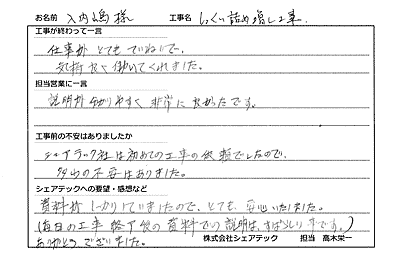 お名前 入内嶋 様 工事名 しっくい詰め増し工事.
工事が終わって一言
仕事が とても ていねいで、
気持良く働いてくれました。
担当営業に一言
説明が分かりやすく 非常に 良かったです。
工事前の不安はありましたか
シェアテック社は初めての工事の依頼でしたので、
多少の不安はありました。
シェアテックへの要望・感想など
資料がしっかりしていましたので、とても、安心いたしました。
(毎日の工事終了後の資料での説明は、すばらしい事です。)
ありがとうございました。 株式会社シェアテック 担当 高木栄一